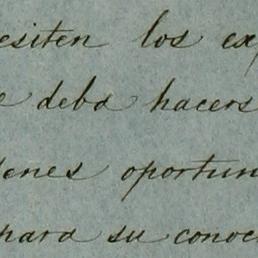 esiten los ex
e deba hacers
denes oportun
para su conoc